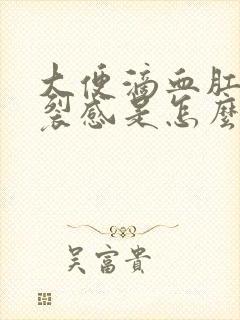 大便滴血肛
裂感是怎麼
吴富貴